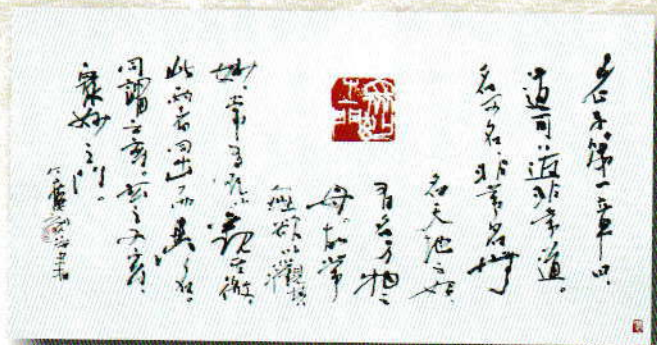 老子第一章曰
道可道非常道。
名可名、非常名、無
名天地之始、
有名万物之
母、故常
無欲以觀其
妙、常有欲以觀其徼、
此兩者同出而異名、
同謂之玄、玄之又玄、
衆妙之門。